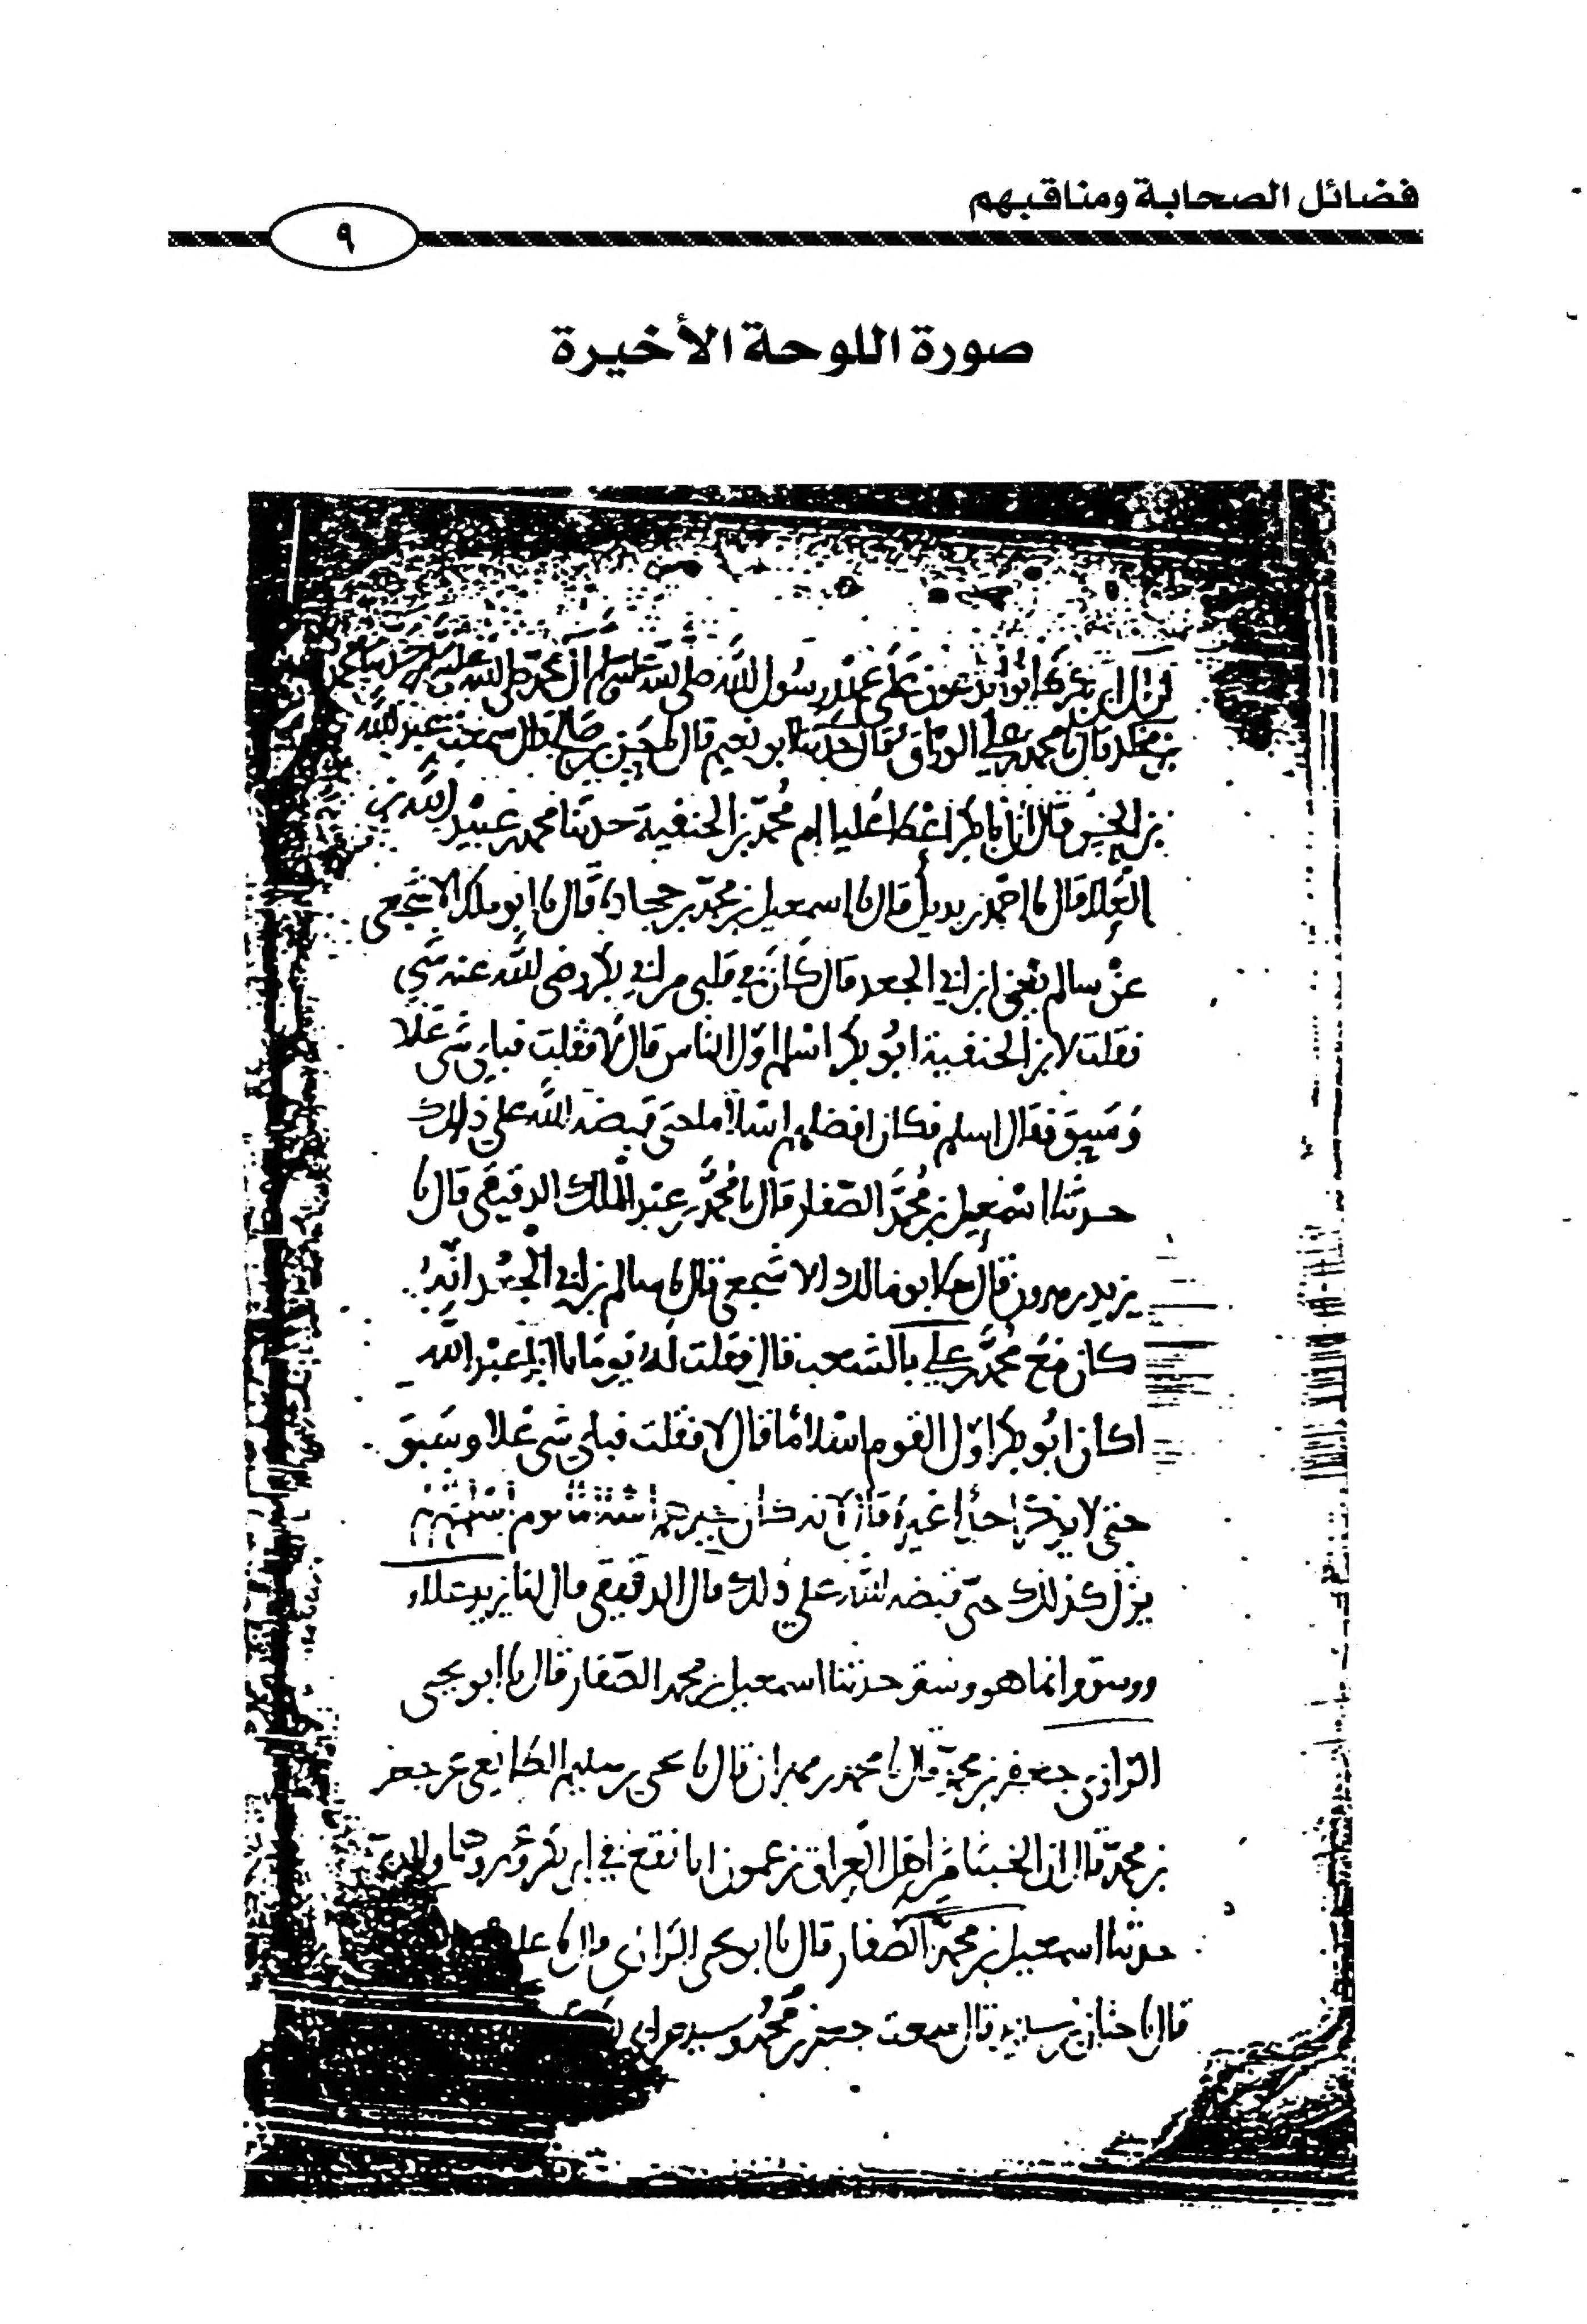 فضائل الصحابة ومناقبهم
٩
صورة اللوحة الأخيرة
ال ابي بكر كانوا يدعون على عهد رسول الله صلى الله عليه وسلم ال محمد صلى الله عليه وسلم حدثنا محمد
بن مخلد قال نا محمد بن علي الوراق قال حدثنا ابو نعيم قال نا حسن بن صالح قال سمعت عبد الله
بن الحسن قال ان ابا بكر اعطا عليا ام محمد بن الحنفية حدثنا محمد بن عبيد الله بن
العلا قال نا احمد بن بديل قال نا اسمعيل بن محمد بن جحادة قال نا ابو ملك الاشجعي
عن سالم يعني ابن ابي الجعد قال كان في قلبي من ابي بكر رضي الله عنه شي
فقلت لابن الحنفية ابو بكر اسلم اول الناس قال لا فقلت فباي شي علا
وسبق فقال اسلم فكان افضلهم اسلاما حتى قبضه الله على ذلك
حدثنا اسمعيل بن محمد الصفار قال نا محمد بن عبد الملك الدقيقي قال نا
يزيد بن هرون قال نا ابو مالك الاشجعي قال نا سالم بن ابي الجعد انه
كان مع محمد بن علي بالشعب قال فقلت له يوما يا ابا عبد الله
اكان ابو بكر اول القوم اسلاما قال لا فقلت فباي شي علا وسبق
حتى لا يذكر احدا غيره قال لانه كان خيرهم اسلاما يوم اسلم لم
يزل كذلك حتى قبضه الله على ذلك قال الدقيقي قال لنا يزيد علا
ووسق وانما هو وسبق حدثنا اسمعيل بن محمد الصفار قال نا ابو يحيى
الرازي جعفر بن محمد قال نا محمد بن مهران قال نا يحيى بن سليم الطايفي عن جعفر
بن محمد قال ان الخبثا من اهل العراق يزعمون انا نقع في ابي بكر وعمر وهما
حدثنا اسمعيل بن محمد الصفار قال نا ابو يحيى الرازي قال نا علي
قال نا حنان بن سدير قال سمعت جعفر بن محمد وسيل عن ابي